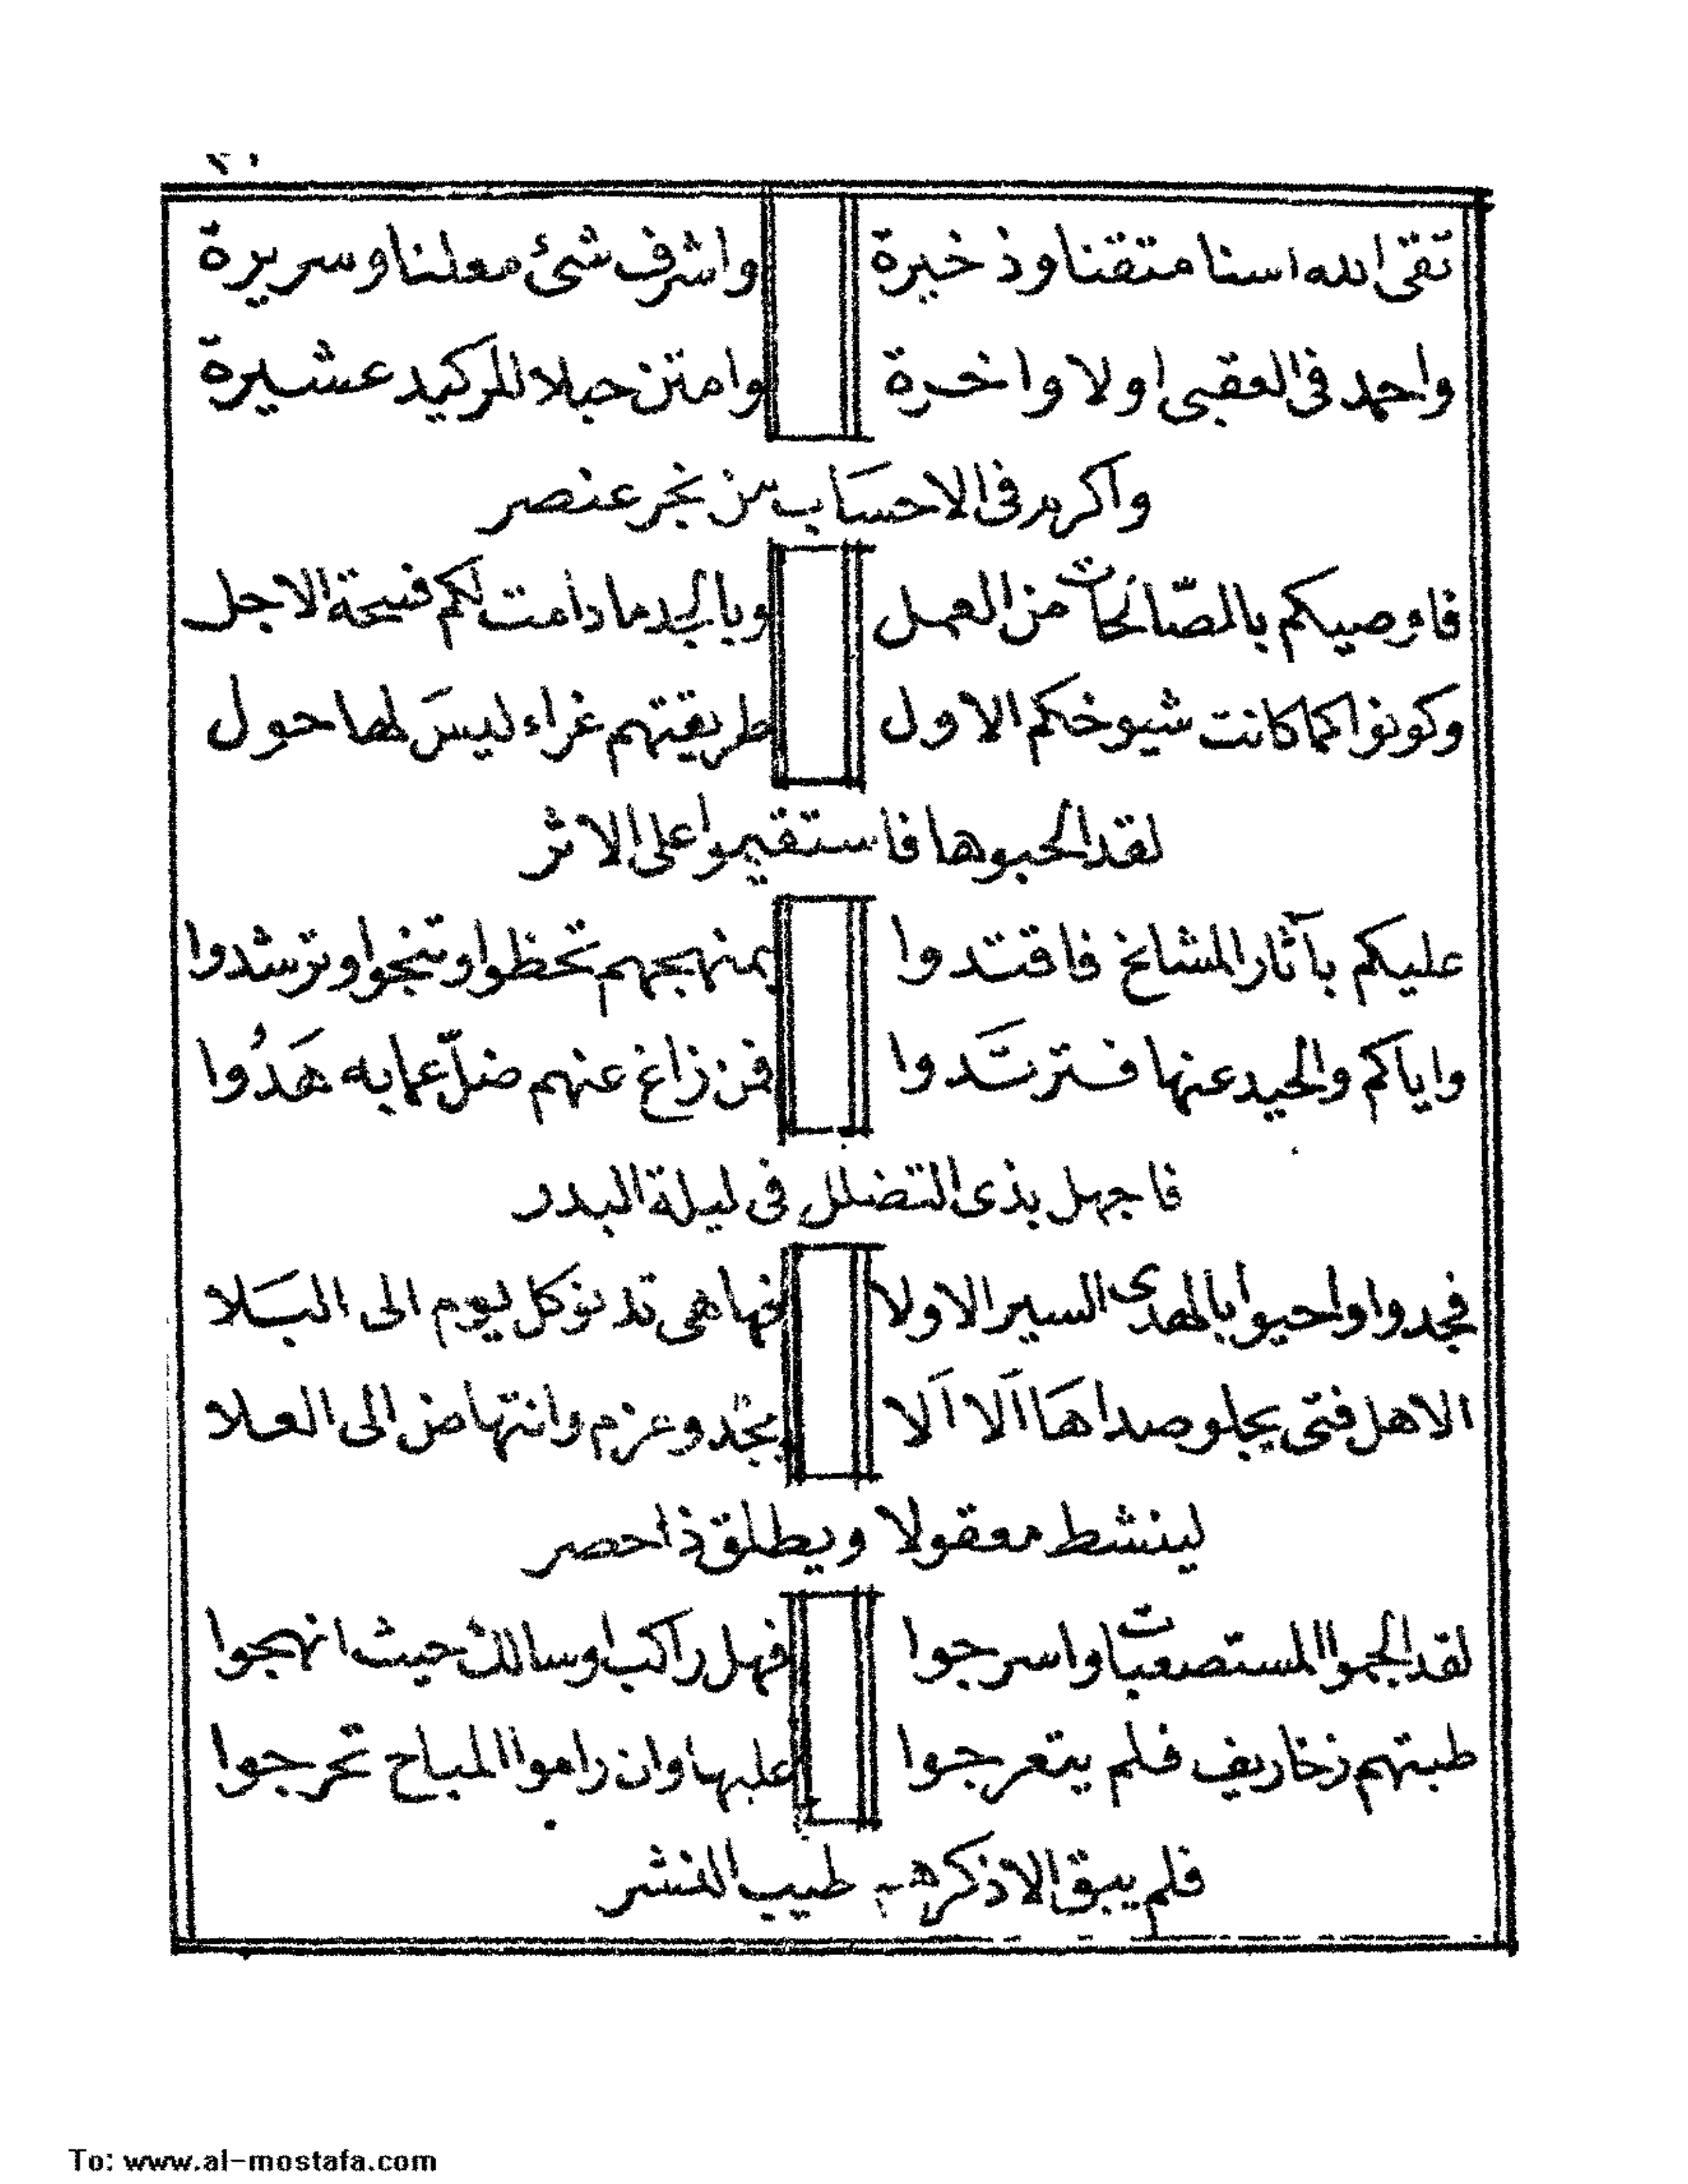 ٢٠
تقى الله اسنا متقنا وذخيرة واشرف شئ معلنا وسريرة
واحمد فى العقبى اولا واخرة وامتن حبلا للمركيد عشيرة
واكرم فى الاحساب من نجر عنصر
فاوصيكم بالصّالحات من العمل وبالجد ما دامت لكم فسيحة الاجل
وكونوا كما كانت شيوخكم الاول طريقتهم غراء ليسَ لها حول
لقد الحبوها فاستقيموا على الاثر
عليكم بآثار المشائخ فاقتدوا بمنهجهم تحظوا وتنجوا وترشدوا
واياكم والحيد عنها فترتَدوا فمن زاغ عنهم ضلّ عمابه هَدُوا
فاجهل بذى التضلل فى ليلة البدر
فجدوا واحيوا بالهدى السير الاولا فها هى تدنو كل يوم الى البَلا
الا هل فتى يجلو صداهَا اَلا اَلا بجّد وعزم وانتهاض الى العلا
لينشط معقولا ويطلق ذا حصر
لقد الجموا المستصعبات واسرجوا فهل راكب او سالك حيث انهجوا
طبتهم زخاريف فلم يتعرجوا عليها وان راموا المباح تحرجوا
فلم يبق الا ذكرهم طيب النشر
To: www.al-mostafa.com